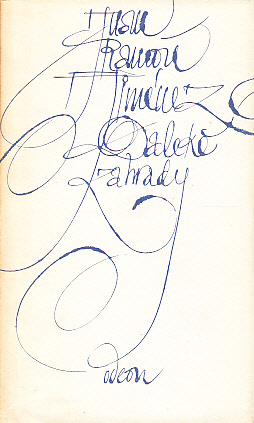 Juan
Ramón
Jiménez
Daleké
zahrady
odeon